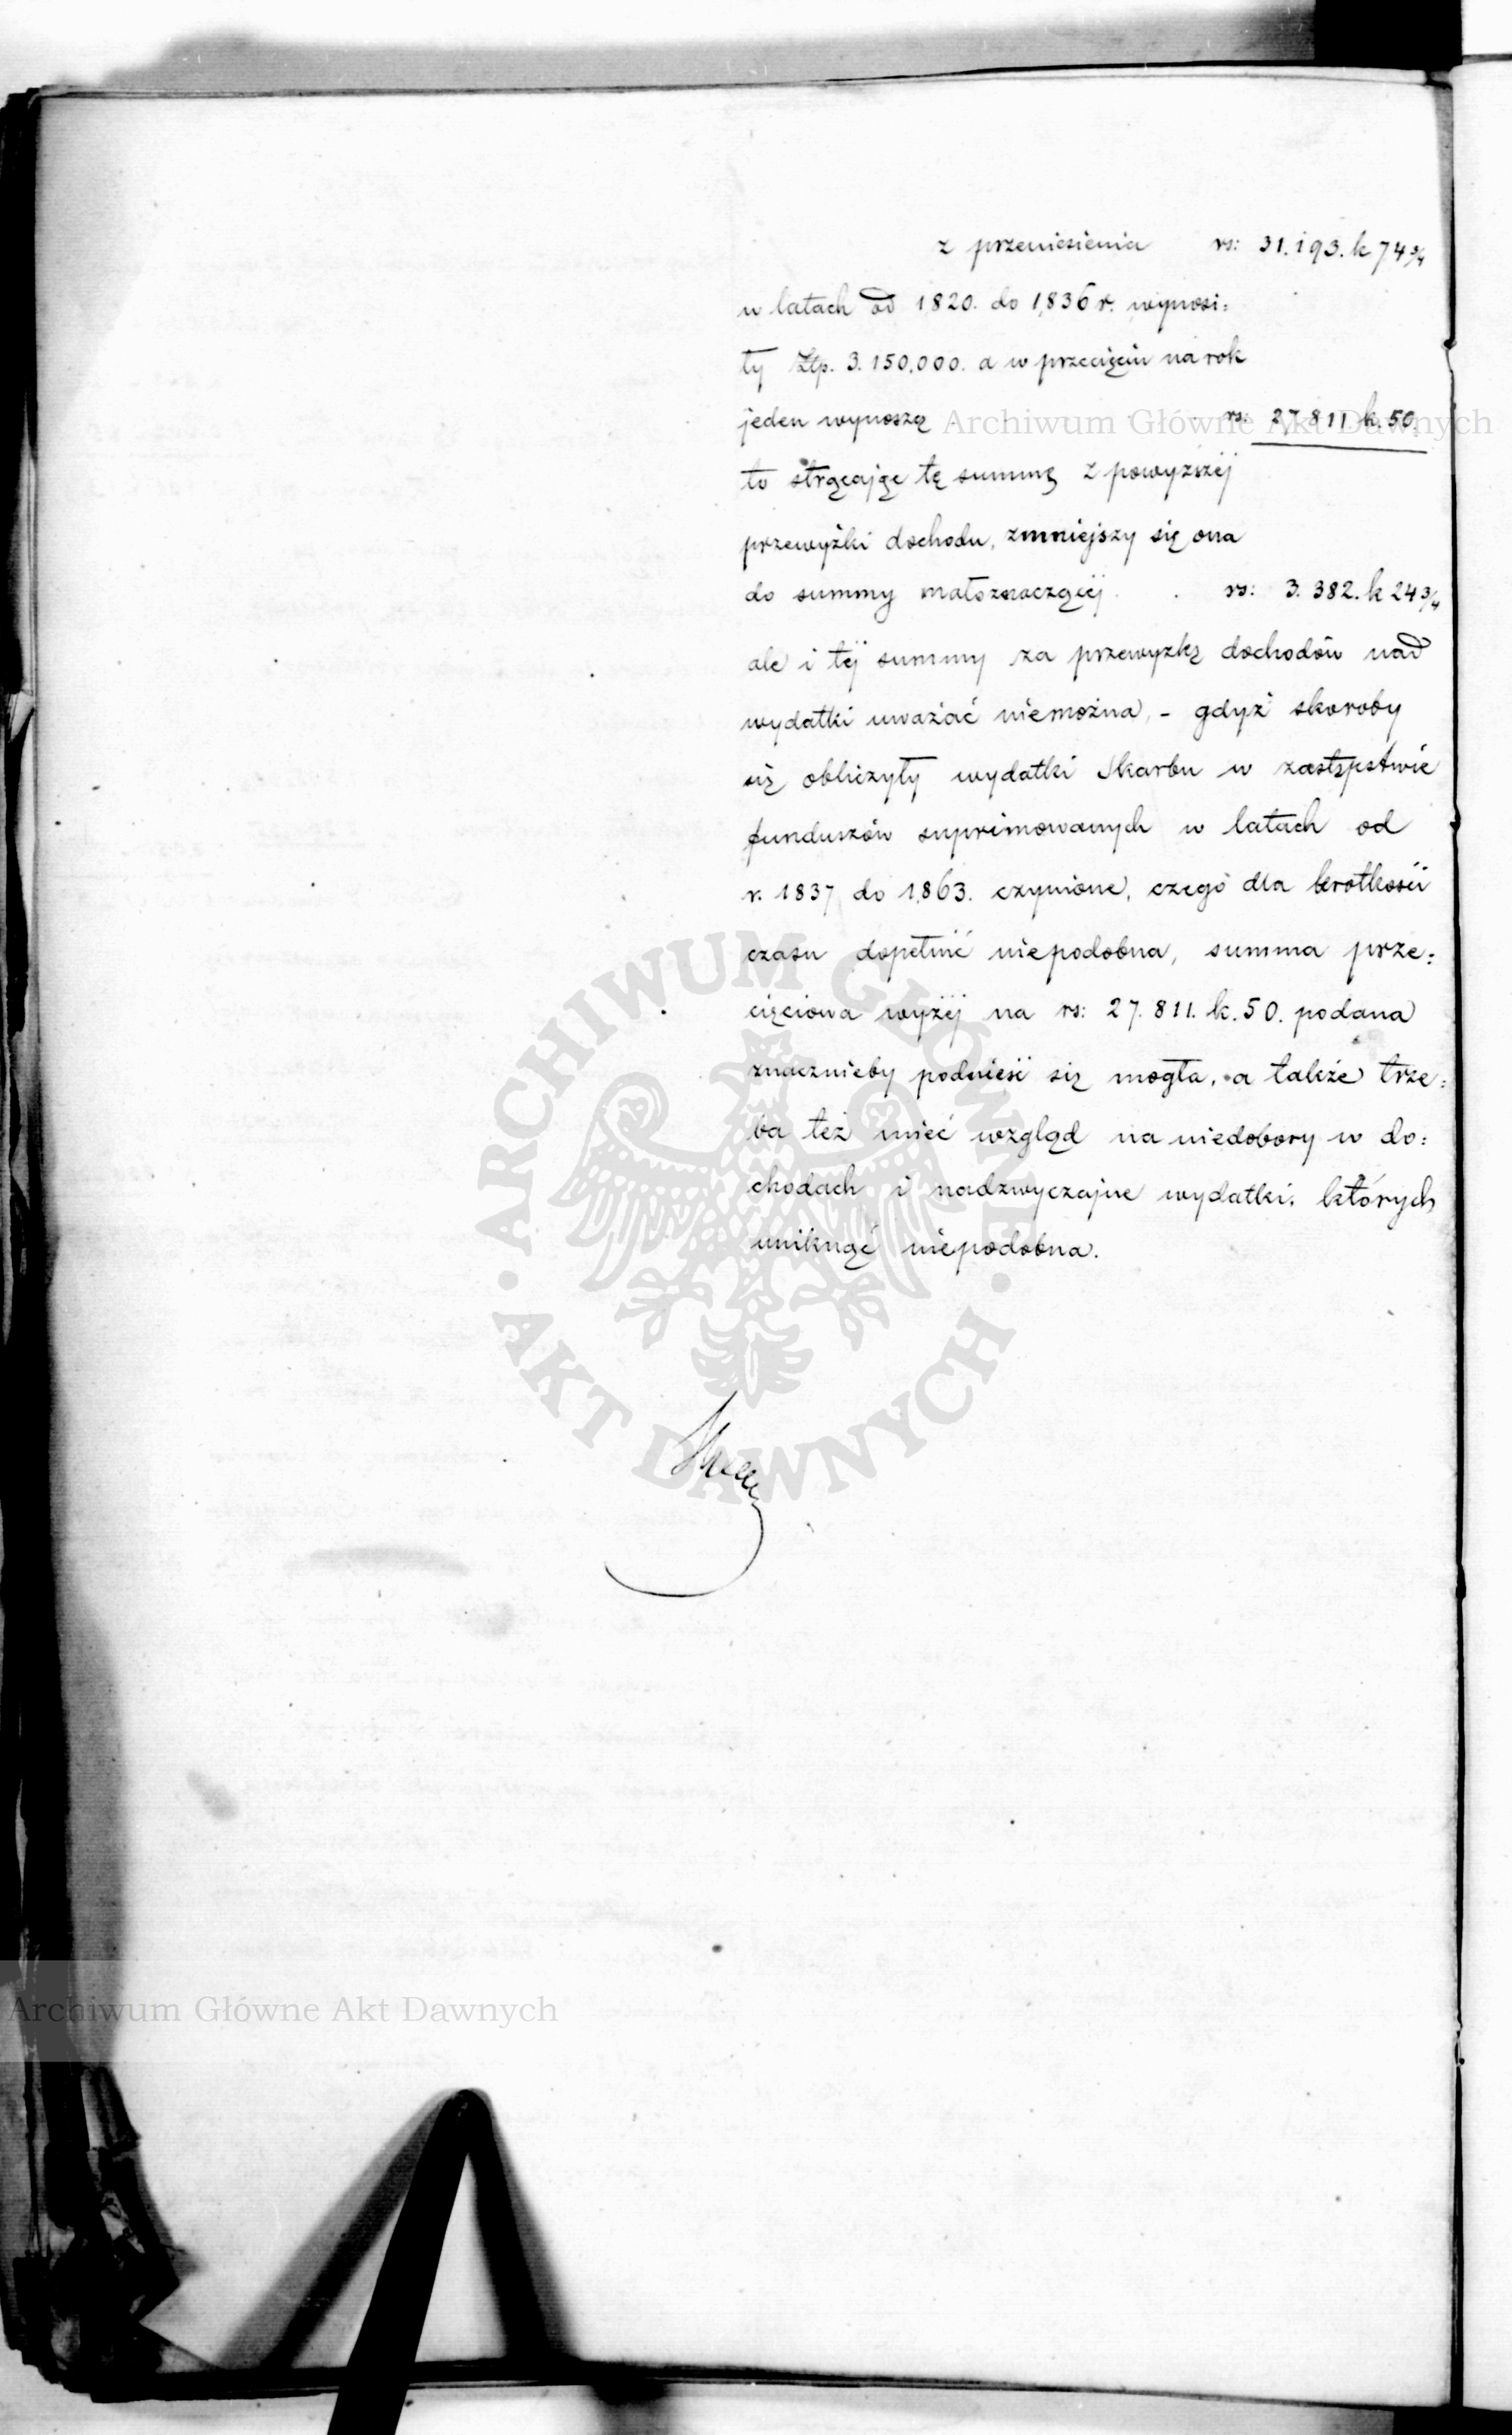 z przeniesienia rs: 31.193. k 74 3/4
w latach od 1820. do 1836 r. wynosi=
ły Złp. 3.150,000. a w przecięciu na rok
jeden wynoszą rs: 27.811 k. 50.
Archiwum Główne Akt Dawnych
to strącając tę summę z powyższéj
przewyżki dochodu, zmniejszy się ona
do summy małoznaczącéj . . rs: 3.382. k 24 3/4
ale i téj summy za przewyżkę dochodów nad
wydatki uważać niemożna, - gdyż skoroby
się obliczyły wydatki Skarbu w zastępstwie
funduszów suprimowanych w latach od
r. 1837 do 1863. czynione, czego dla krótkości
czasu dopełnić niepodobna, summa prze=
cięciowa wyżéj na rs: 27.811. k. 50. podana
znacznieby podnieść się mogła, a także trze=
ba też mieć wzgląd na niedobory w do=
chodach i nadzwyczajne wydatki, których
uniknąć niepodobna.
ARCHIWUM GŁÓWNE · AKT DAWNYCH ·
Archiwum Główne Akt Dawnych